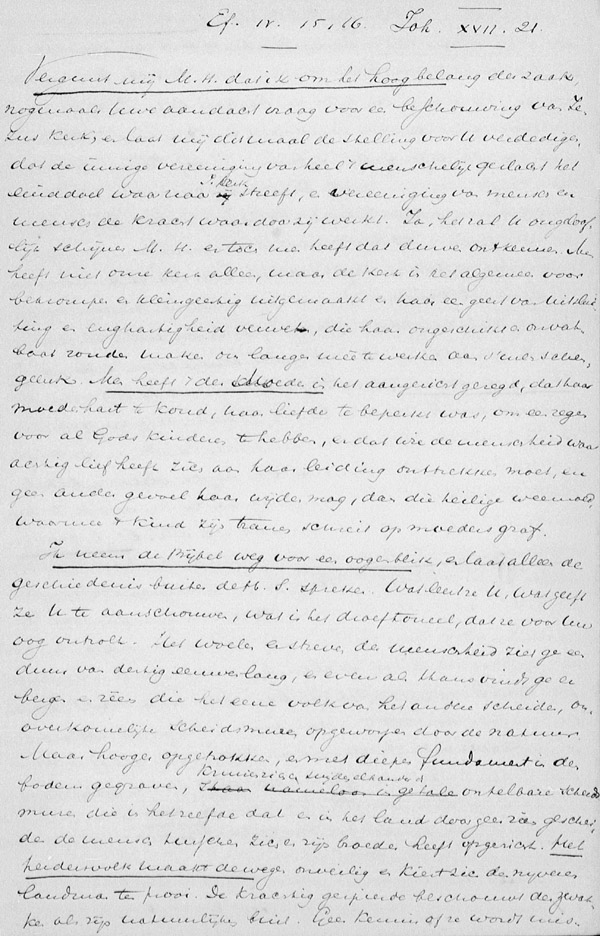 Ef. IV. 15, 16. Joh. XVII. 21.
Vergunt mij M. H. dat ik om het hoog belang der zaak,
nogmaals Uwe aandacht vraag voor een beschouwing van Je-
zus kerk, en laat mij ditmaal de stelling voor U verdedigen
dat de innige vereeniging van heel 't menschelijk geslacht het
einddoel waarnaar J. Kerk streeft, en vereeniging van mensch en
mensch de kracht waardoor zij werkt. Ja, het zal U ongeloof-
lijk schijnen M. H. en toch men heeft dat durven ontkennen. Men
heeft niet onze kerk alleen, maar de kerk in het algemeen voor
bekrompen en kleingeestig uitgemaakt en haar een geest van uitslui-
ting en enghartigheid verweten, die haar ongeschikt en onvat-
baar zouden maken om langer meê te werken aan
Men heeft 't der Moeder in het aangezicht gezegd, dat haar
moederhart te koud, haar liefde te beperkt was, om een zegen
voor al Gods kinderen te hebben, en dat wie de menschheid waar
achtig lief heeft zich aan haar leiding onttrekken moet, en
geen ander gevoel haar wijden mag, dan die heilige weemoed,
waarmee 't kind zijn tranen schreit op moeders graf.
Ik neem de Bijbel weg voor een oogenblik, en laat alleen de
geschiedenis buiten de H. S. spreken. Wat leert ze U, wat geeft
ze U te aanschouwen, wat is het droef tooneel, dat ze voor Uw
oog ontrolt. Het woelen en streven der menschheid ziet ge een
duur van dertig eeuwen lang, en even als thans vindt ge en
bergen en zeeën die het eene volk van het andere scheiden, on-
overkomelijke scheidsmuren opgeworpen door de natuur
Maar hooger opgetrokken, en met dieper fundament in den
bodem gegraven, onkelbare scheids
muren die in hetzelfde dat en in het land door geen zeën geschei-
den de mensch tusschen zich en zijn broeder heeft opgericht. Het
heidenvolk maakt de wegen onveilig en kiest zich de nijvere
landman ten prooi. De krachtig gespierde beschouwt den zwak-
ke als zijn natuurlijken buit. Geen kennis of ze wordt mis-